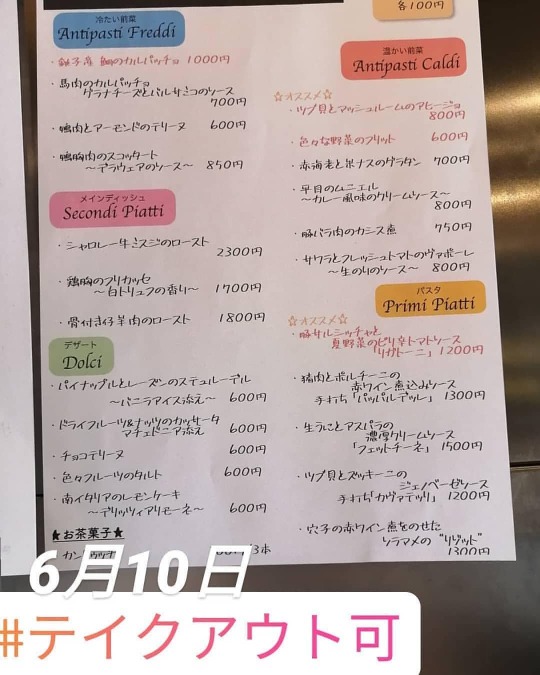 各100円
冷たい前菜
Antipasti Freddi
・銚子産 鯛のカルパッチョ 1000円
・馬肉のカルパッチョ
グラナチーズとバルサミコのソース
700円
・鴨肉とアーモンドのテリーヌ 600円
・鴨胸肉のスコッタート
〜デラウェアのソース〜 850円
メインディッシュ
Secondi Piatti
・シャロレー牛ミスジのロースト
2300円
・鶏胸のフリカッセ
〜白トリュフの香り〜 1700円
・骨付き仔羊肉のロースト 1800円
デザート
Dolci
・パイナップルとレーズンのステュルーデル
〜バニラアイス添え〜 600円
・ドライフルーツ&ナッツのカッサータ
マチェドニア添え 600円
・チョコテリーヌ 600円
・色々フルーツのタルト 600円
・南イタリアのレモンケーキ
〜デリッツィアリモーネ〜 600円
★お茶菓子★
温かい前菜
Antipasti Caldi
☆オススメ☆
・ツブ貝とマッシュルームのアヒージョ
800円
・色々な野菜のフリット 600円
・赤海老と米ナスのグラタン 700円
・平目のムニエル
〜カレー風味のクリームソース〜
800円
・豚バラ肉のカシス煮 750円
・サワラとフレッシュトマトのヴァポーレ
〜生のりのソース〜 800円
パスタ
Primi Piatti
☆オススメ☆
・豚サルシッチャと
夏野菜のピリ辛トマトソース
「リガトーニ」1200円
・猪肉とポルチーニの
赤ワイン煮込みソース
手打ち「パッパルデッレ」 1300円
・生うにとアスパラの
濃厚クリームソース
「フェットチーネ」 1500円
・ツブ貝とズッキーニの
ジェノベーゼソース
手打ち「カヴァテッリ」 1200円
・穴子の赤ワイン煮をのせた
ソラマメの "リゾット"
1300円
6月10日
#テイクアウト可